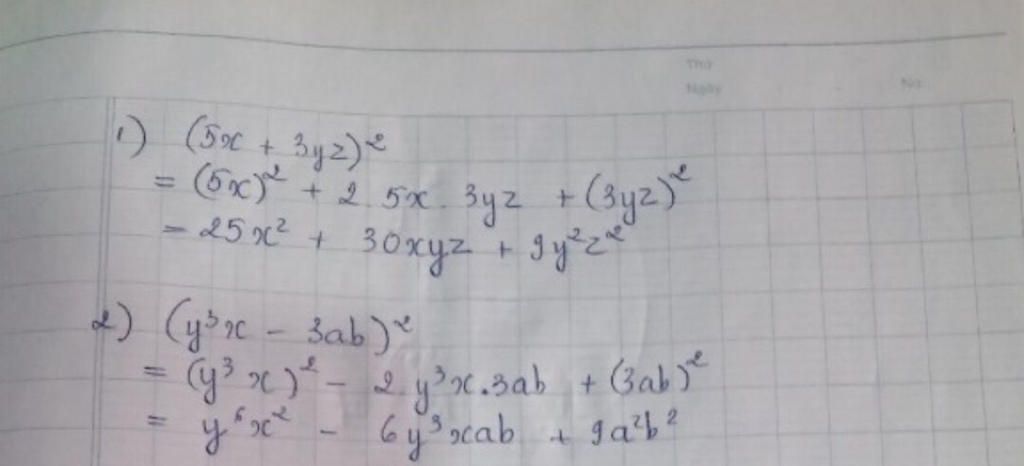 Thứ
Ngày No
1) (5x + 3yz)²
= (5x)² + 2 5x . 3yz + (3yz)²
= 25x² + 30xyz + 9y²z²
2) (y³x - 3ab)²
= (y³ x)² - 2 y³x.3ab + (3ab)²
= y⁶x² - 6y³xab + 9a²b²